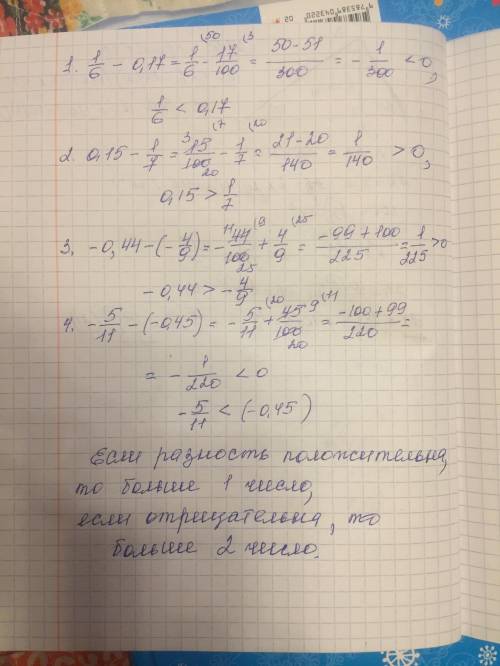 1. 1/6 - 0,17 = 1/6 (50 - 17/100 (3 = (50-51)/300 = - 1/300 < 0,
1/6 < 0,17
2. 0,15 - 1/7 = 3 15/100 20 (7 - 1/7 (20 = (21-20)/140 = 1/140 > 0,
0,15 > 1/7
3. -0,44 - (- 4/9) = - 11 44/100 25 (9 + 4/9 (25 = (-99+100)/225 = 1/225 > 0
-0,44 > - 4/9
4. - 5/11 - (-0,45) = - 5/11 (20 + 45/100 20 9 (11 = (-100+99)/220 =
= - 1/220 < 0
- 5/11 < (-0,45)
Если разность положительна,
то больше 1 число,
если отрицательна, то
больше 2 число.